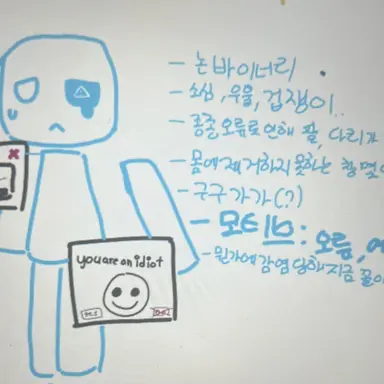 - 논바이너리
- 소심, 우울, 겁쟁이..
- 종종 오류로 인해 팔, 다리가
- 몸에 제거하지 못하는 창 몇
- 구구가가(?)
- 모티브 : 오류,
- 뭔가에 감염 당해 지금 꼴이
you are an idiot